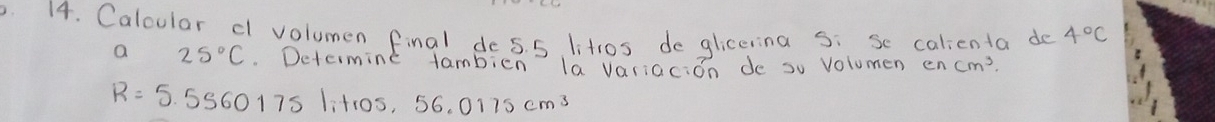 14. Calcular el volumen final de 5.5 litros de glicerina si se calienta de 4°C
a 25°C. Determine tambien la variación de su volumen en cm³.
R = 5.5560175 litros, 56.0175 cm³